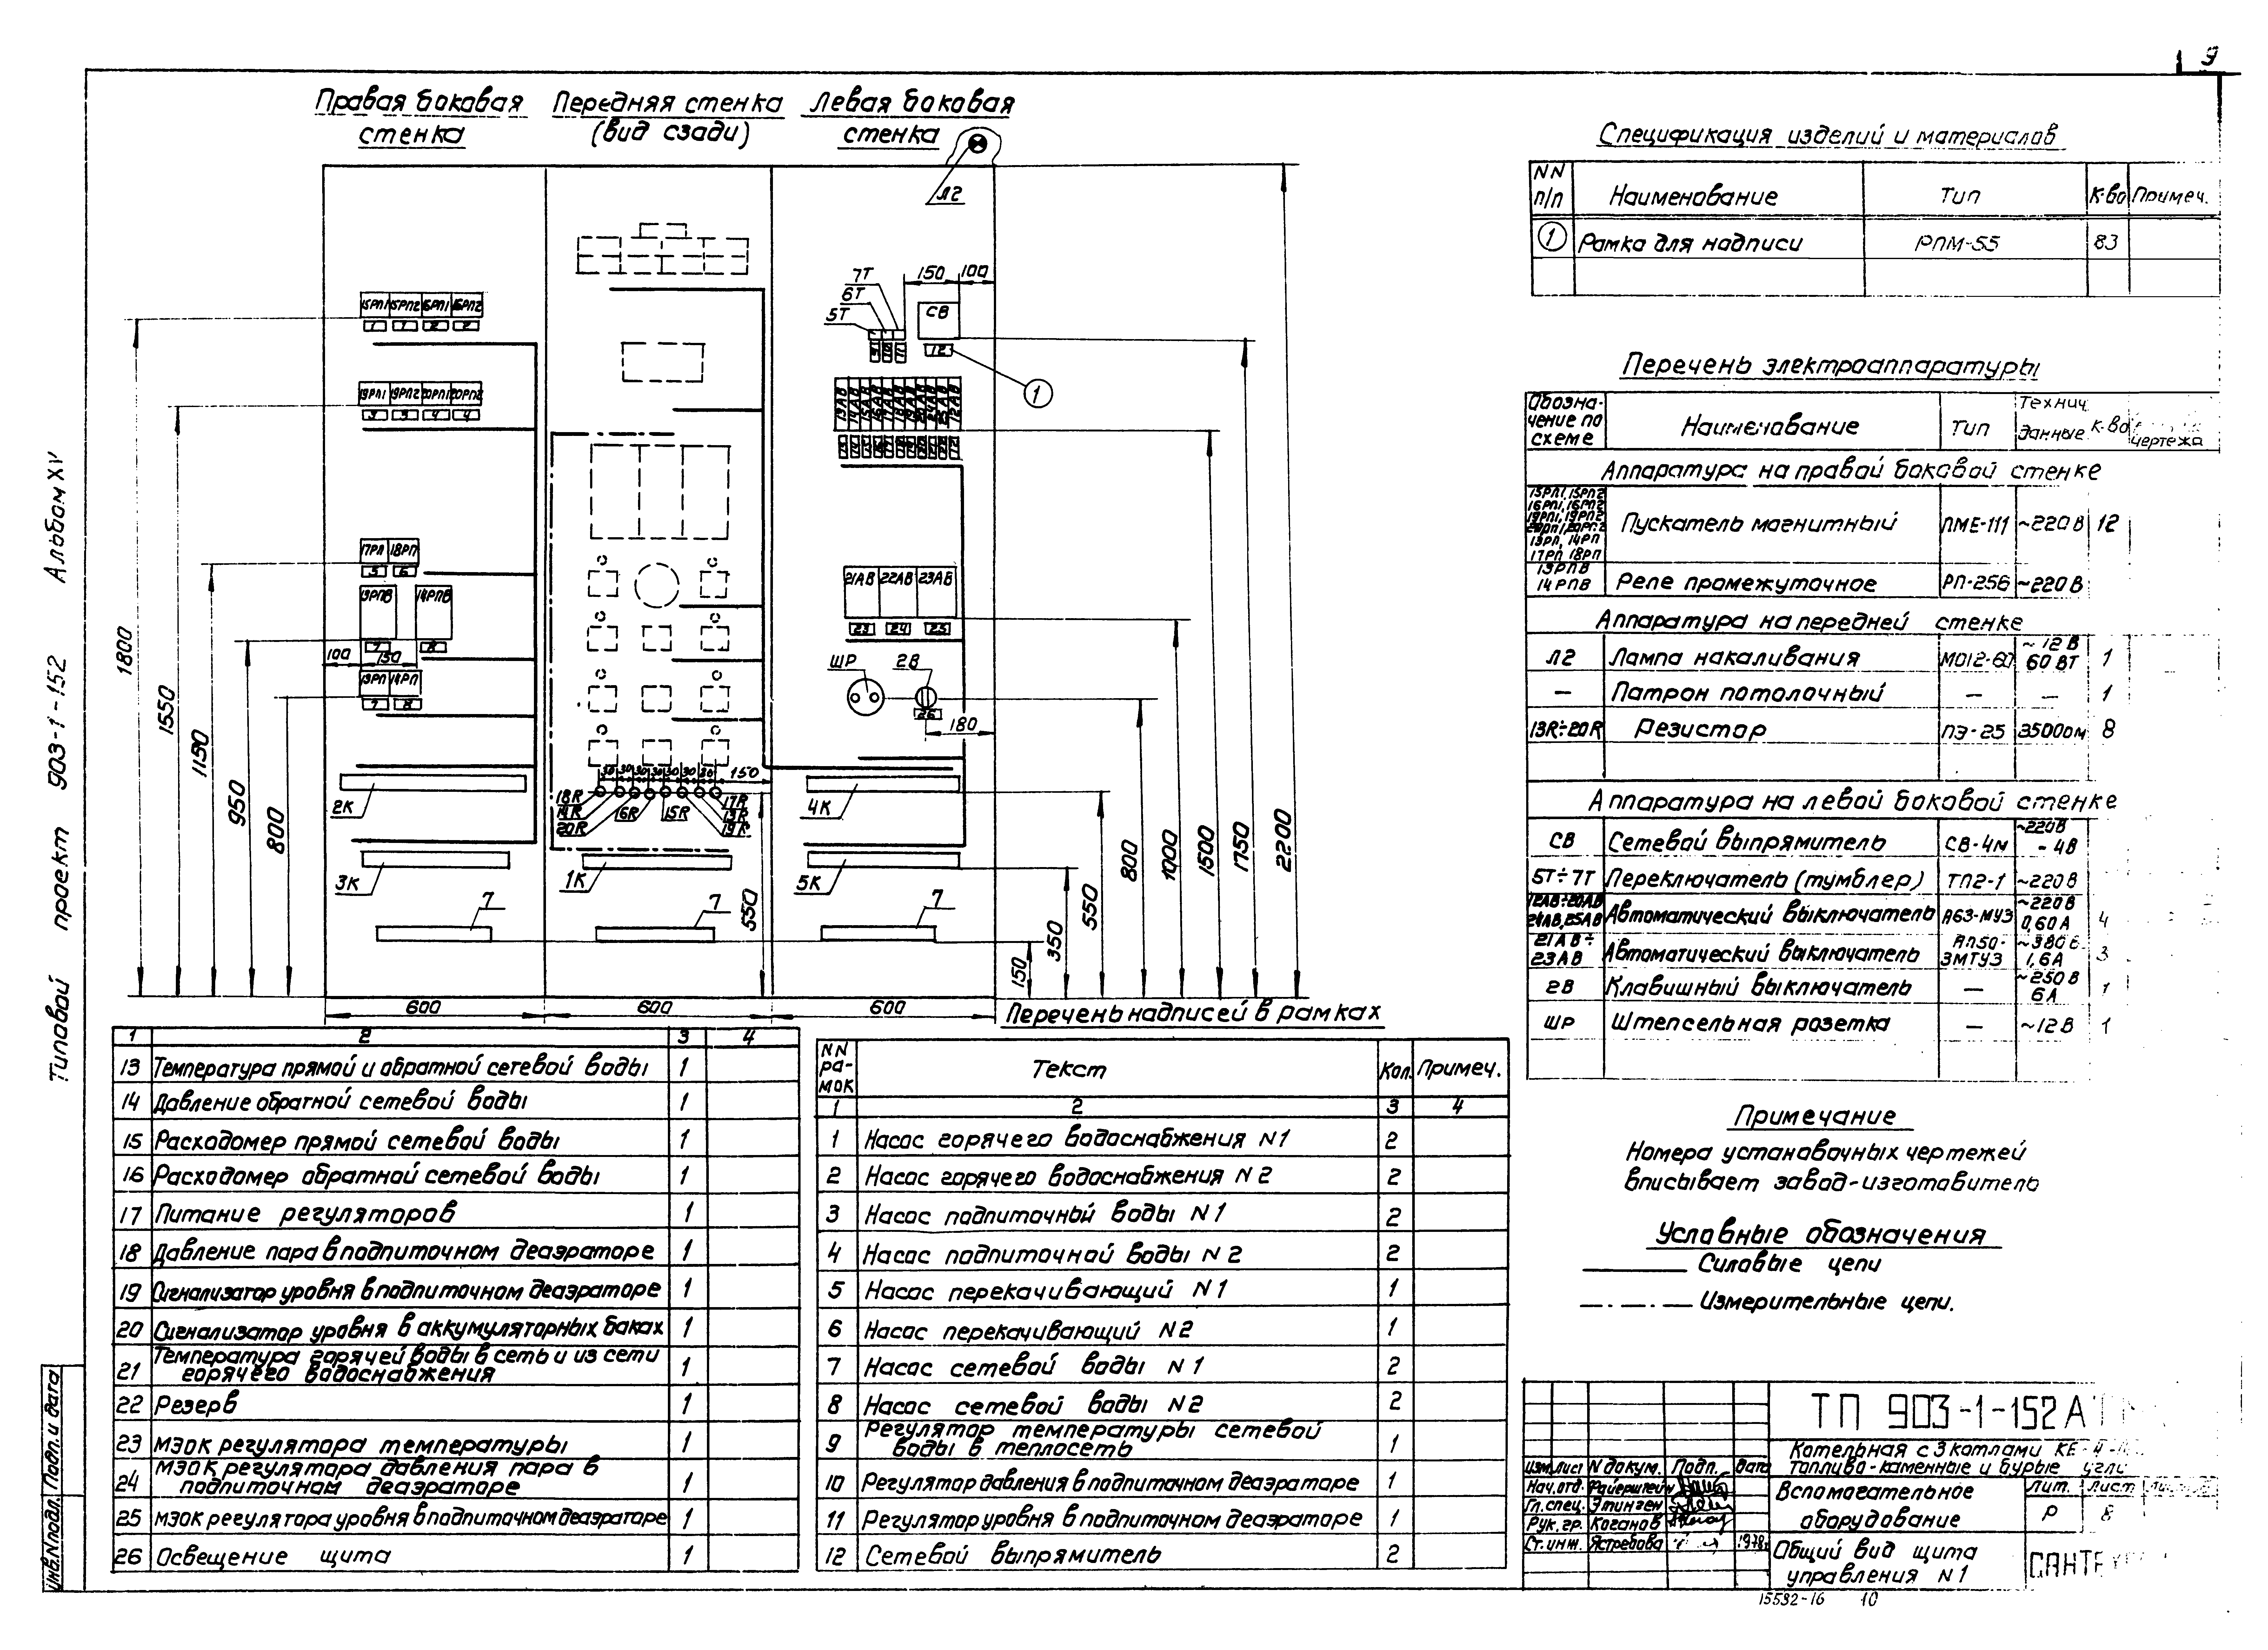 9
Правая боковая стенка
Передняя стенка (вид сзади)
Левая боковая стенка
Л2
15РП1 15РП2 16РП1 16РП2
1 1 2 2
19РП1 19РП2 20РП1 20РП2
3 3 4 4
17РП 18РП
5 6
13РПВ 14РПВ
7 8
100 150
13РП 14РП
7 8
2К
3К
7
18R 14R 20R 16R 15R 17R 13R 19R
30 30 30 30 30 30 30 150
1К
7
550
7Т
6Т
5Т
150 100
СВ
12
1
13АВ 14АВ 15АВ 16АВ 17АВ 18АВ 19АВ 20АВ 24АВ 25АВ 12АВ
21АВ 22АВ 23АВ
23 24 25
ШР 2В
26
180
4К
5К
7
1800
1550
1150
950
800
150
350
550
800
1000
1500
1750
2200
600 600 600
Типовой проект 903-1-152 Альбом XV
Инв.N подл. Подп. и дата
Спецификация изделий и материалов
NN п/п Наименование Тип К-во Примеч.
1 Рамка для надписи РПМ-55 83
Перечень электроаппаратуры
Обозначение по схеме Наименование Тип Технич. данные К-во чертежа
Аппаратура на правой боковой стенке
15РП1, 15РП2
16РП1, 16РП2
19РП1, 19РП2
20РП1, 20РП2
13РП, 14РП
17РП 18РП
Пускатель магнитный ПМЕ-111 ~220В 12
13РПВ
14РПВ Реле промежуточное РП-256 ~220В
Аппаратура на передней стенке
Л2 Лампа накаливания МО12-60 ~12В 60ВТ 1
— Патрон потолочный — — 1
13R÷20R Резистор ПЭ-25 3500ом 8
Аппаратура на левой боковой стенке
СВ Сетевой выпрямитель СВ-4м ~220В - 4В
5Т÷7Т Переключатель (тумблер) ТП2-1 ~220В
12АВ÷20АВ 24АВ,25АВ Автоматический выключатель А63-МУЗ ~220В 0,60А 4
21АВ÷ 23АВ Автоматический выключатель АП50-3МТУЗ ~380в 1,6А 3
2В Клавишный выключатель — ~250В 6А 1
ШР Штепсельная розетка — ~12В 1
Примечание
Номера установочных чертежей
вписывает завод-изготовитель
Условные обозначения
Силовые цепи
Измерительные цепи.
1 2 3 4
13 Температура прямой и обратной сетевой воды 1
14 Давление обратной сетевой воды 1
15 Расходомер прямой сетевой воды 1
16 Расходомер обратной сетевой воды 1
17 Питание регуляторов 1
18 Давление пара в подпиточном деаэраторе 1
19 Сигнализатор уровня в подпиточном деаэраторе 1
20 Сигнализатор уровня в аккумуляторных баках 1
21 Температура горячей воды в сеть и из сети
горячего водоснабжения 1
22 Резерв 1
23 МЭОК регулятора температуры 1
24 МЭОК регулятора давления пара в
подпиточном деаэраторе 1
25 МЭОК регулятора уровня в подпиточном деаэраторе 1
26 Освещение щита 1
Перечень надписей в рамках
NN рамок Текст Кол. Примеч.
1 2 3 4
1 Насос горячего водоснабжения N1 2
2 Насос горячего водоснабжения N2 2
3 Насос подпиточный воды N1 2
4 Насос подпиточной воды N2 2
5 Насос перекачивающий N1 1
6 Насос перекачивающий N2 1
7 Насос сетевой воды N1 2
8 Насос сетевой воды N2 2
9 Регулятор температуры сетевой
воды в теплосеть 1
10 Регулятор давления в подпиточном деаэраторе 1
11 Регулятор уровня в подпиточном деаэраторе 1
12 Сетевой выпрямитель 2
ТП 903-1-152 А
Котельная с 3 котлами КЕ-4-
Топливо-каменные и бурые угли
Изм. Лист N докум. Подп. Дата
Нач.отд. Райерштейн
Гл.спец. Этинген
Рук.гр. Коганов
Ст.инж. Ястребова 1978г
Вспомагательное оборудование
Лит. Лист
Р 8
Общий вид щита управления N1
САНТЕХ
15532-16 10